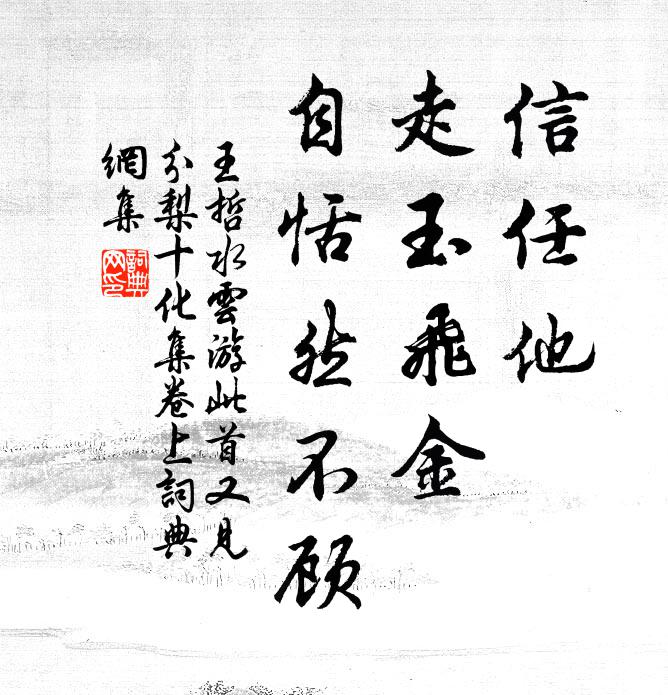 信任他
走玉飛金
自恬然不顾
王哲水雲游此首又見
分梨十化集卷上詞典
網集
詞典网印